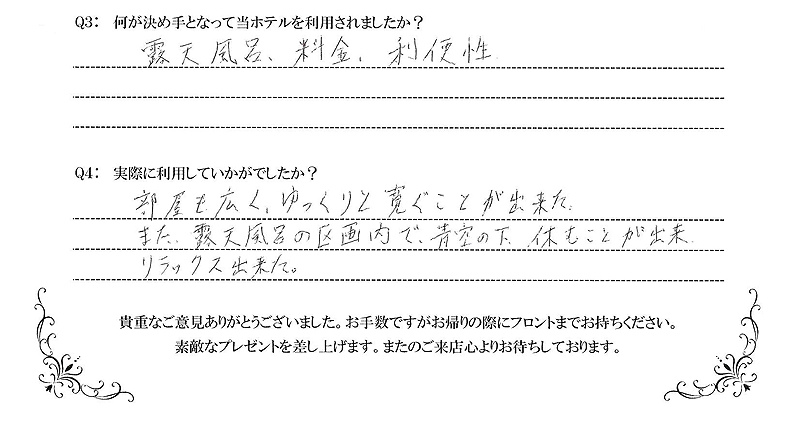 Q3： 何が決め手となって当ホテルを利用されましたか？
露天風呂、料金、利便性
Q4： 実際に利用していかがでしたか？
部屋も広く、ゆっくりと寛ぐことが出来た。
また、露天風呂の区画内で、青空の下、休むことが出来、
リラックス出来た。
貴重なご意見ありがとうございました。お手数ですがお帰りの際にフロントまでお持ちください。
素敵なプレゼントを差し上げます。またのご来店心よりお待ちしております。